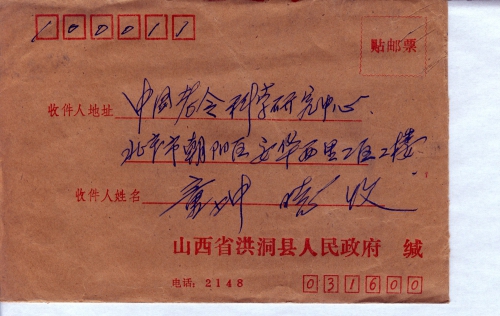 100011
贴邮票
收件人地址 中国老令科学研究中心
北京市朝阳区安华西里二区2楼
收件人姓名 收
山西省洪洞县人民政府 缄
电话:2148 031600